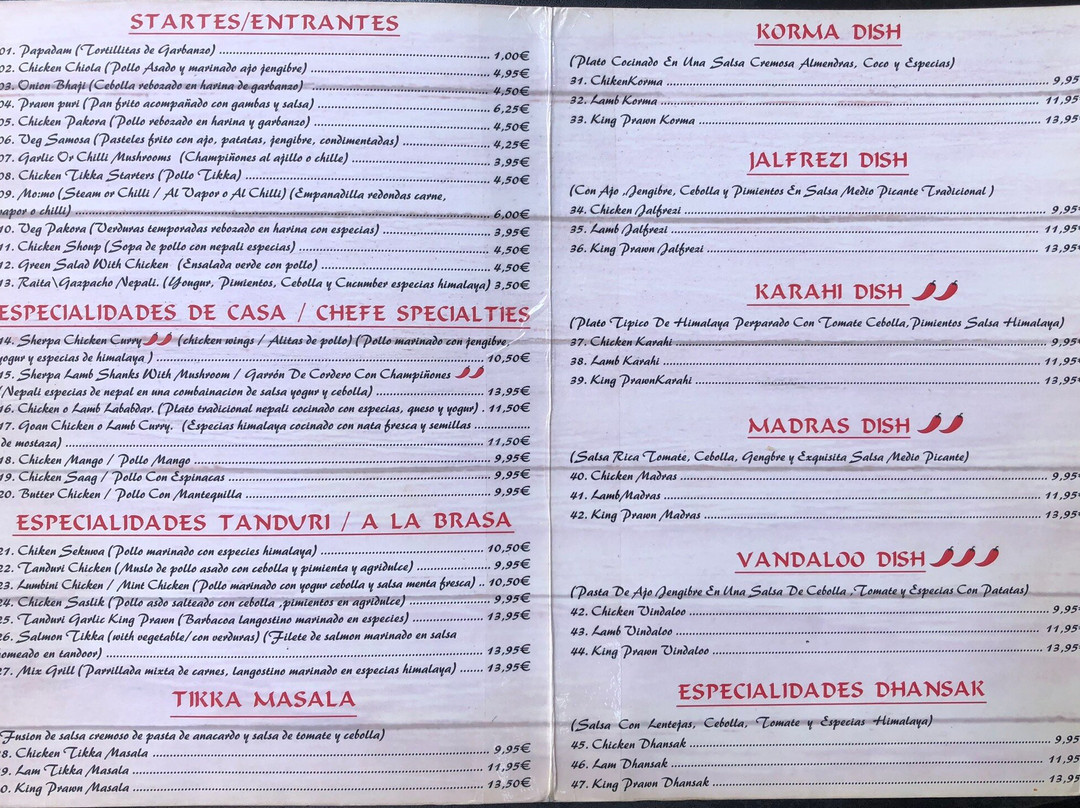 STARTES/ENTRANTES
01. Papadam (Tortillitas de Garbanzo) 1,00€
02. Chicken Chiola (Pollo Asado y marinado ajo jengibre) 4,95€
03. Onion Bhaji (Cebolla rebozado en harina de garbanzo) 4,50€
04. Prawn puri (Pan frito acompañado con gambas y salsa) 6,25€
05. Chicken Pakora (Pollo rebozado en harina y garbanzo) 4,50€
06. Veg Samosa (Pasteles frito con ajo, patatas, jengibre, condimentadas) 4,25€
07. Garlic Or Chilli Mushrooms (Champiñones al ajillo o chille) 3,95€
08. Chicken Tikka Starters (Pollo Tikka) 4,50€
09. Mo:mo (Steam or Chilli / Al Vapor o Al Chilli) (Empanadilla redondas carne,
vapor o chilli) 6,00€
10. Veg Pakora (Verduras temporadas rebozado en harina con especias) 3,95€
11. Chicken Shoup (Sopa de pollo con nepali especias) 4,50€
12. Green Salad With Chicken (Ensalada verde con pollo) 4,50€
13. Raita\Gazpacho Nepali. (Yougur, Pimientos, Cebolla y Cucumber especias himalaya) 3,50€
ESPECIALIDADES DE CASA / CHEFE SPECIALTIES
14. Sherpa Chicken Curry (chicken wings / Alitas de pollo) (Pollo marinado con jengibre,
yogur y especias de himalaya ) 10,50€
15. Sherpa Lamb Shanks With Mushroom / Garrón De Cordero Con Champiñones
(Nepali especias de nepal en una combainacion de salsa yogur y cebolla) 13,95€
16. Chicken o Lamb Lababdar. (Plato tradicional nepali cocinado con especias, queso y yogur) . 11,50€
17. Goan Chicken o Lamb Curry. (Especias himalaya cocinado con nata fresca y semillas
de mostaza) 11,50€
18. Chicken Mango / Pollo Mango 9,95€
19. Chicken Saag / Pollo Con Espinacas 9,95€
20. Butter Chicken / Pollo Con Mantequilla 9,95€
ESPECIALIDADES TANDURI / A LA BRASA
21. Chiken Sekuwa (Pollo marinado con especies himalaya) 10,50€
22. Tanduri Chicken (Muslo de pollo asado con cebolla y pimienta y agridulce) 9,95€
23. Lumbini Chicken / Mint Chicken (Pollo marinado con yogur cebolla y salsa menta fresca) .. 10,50€
24. Chicken Saslik (Pollo asdo salteado con cebolla ,pimientos en agridulce) 9,95€
25. Tanduri Garlic King Prawn (Barbacoa langostino marinado en especies) 13,95€
26. Salmon Tikka (with vegetable/con verduras) (Filete de salmon marinado en salsa
omeado en tandoor) 13,95€
27. Mix Grill (Parrillada mixta de carnes, langostino marinado en especias himalaya) 13,95€
TIKKA MASALA
(Fusion de salsa cremoso de pasta de anacardo y salsa de tomate y cebolla)
28. Chicken Tikka Masala 9,95€
29. Lam Tikka Masala 11,95€
30. King Prawn Masala 13,50€
KORMA DISH
(Plato Cocinado En Una Salsa Cremosa Almendras, Coco y Especias)
31. ChikenKorma 9,95
32. Lamb Korma 11,95
33. King Prawn Korma 13,95
JALFREZI DISH
(Con Ajo ,Jengibre, Cebolla y Pimientos En Salsa Medio Picante Tradicional )
34. Chicken Jalfrezi 9,95
35. Lamb Jalfrezi 11,95
36. King Prawn Jalfrezi 13,95
KARAHI DISH
(Plato Tipico De Himalaya Perparado Con Tomate Cebolla, Pimientos Salsa Himalaya)
37. Chicken Karahi 9,95
38. Lamb Karahi 11,95
39. King PrawnKarahi 13,95
MADRAS DISH
(Salsa Rica Tomate, Cebolla, Gengbre y Exquisita Salsa Medio Picante)
40. Chicken Madras 9,95€
41. LambMadras 11,95
42. King Prawn Madras 13,95
VANDALOO DISH
(Pasta De Ajo Jengibre En Una Salsa De Cebolla ,Tomate y Especias Con Patatas)
42. Chicken Vindaloo 9,95
43. Lamb Vindaloo 11,95
44. King Prawn Vindaloo 13,95
ESPECIALIDADES DHANSAK
(Salsa Con Lentejas, Cebolla, Tomate y Especias Himalaya)
45. Chicken Dhansak 9,95
46. Lam Dhansak 11,95
47. King Prawn Dhansak 13,95